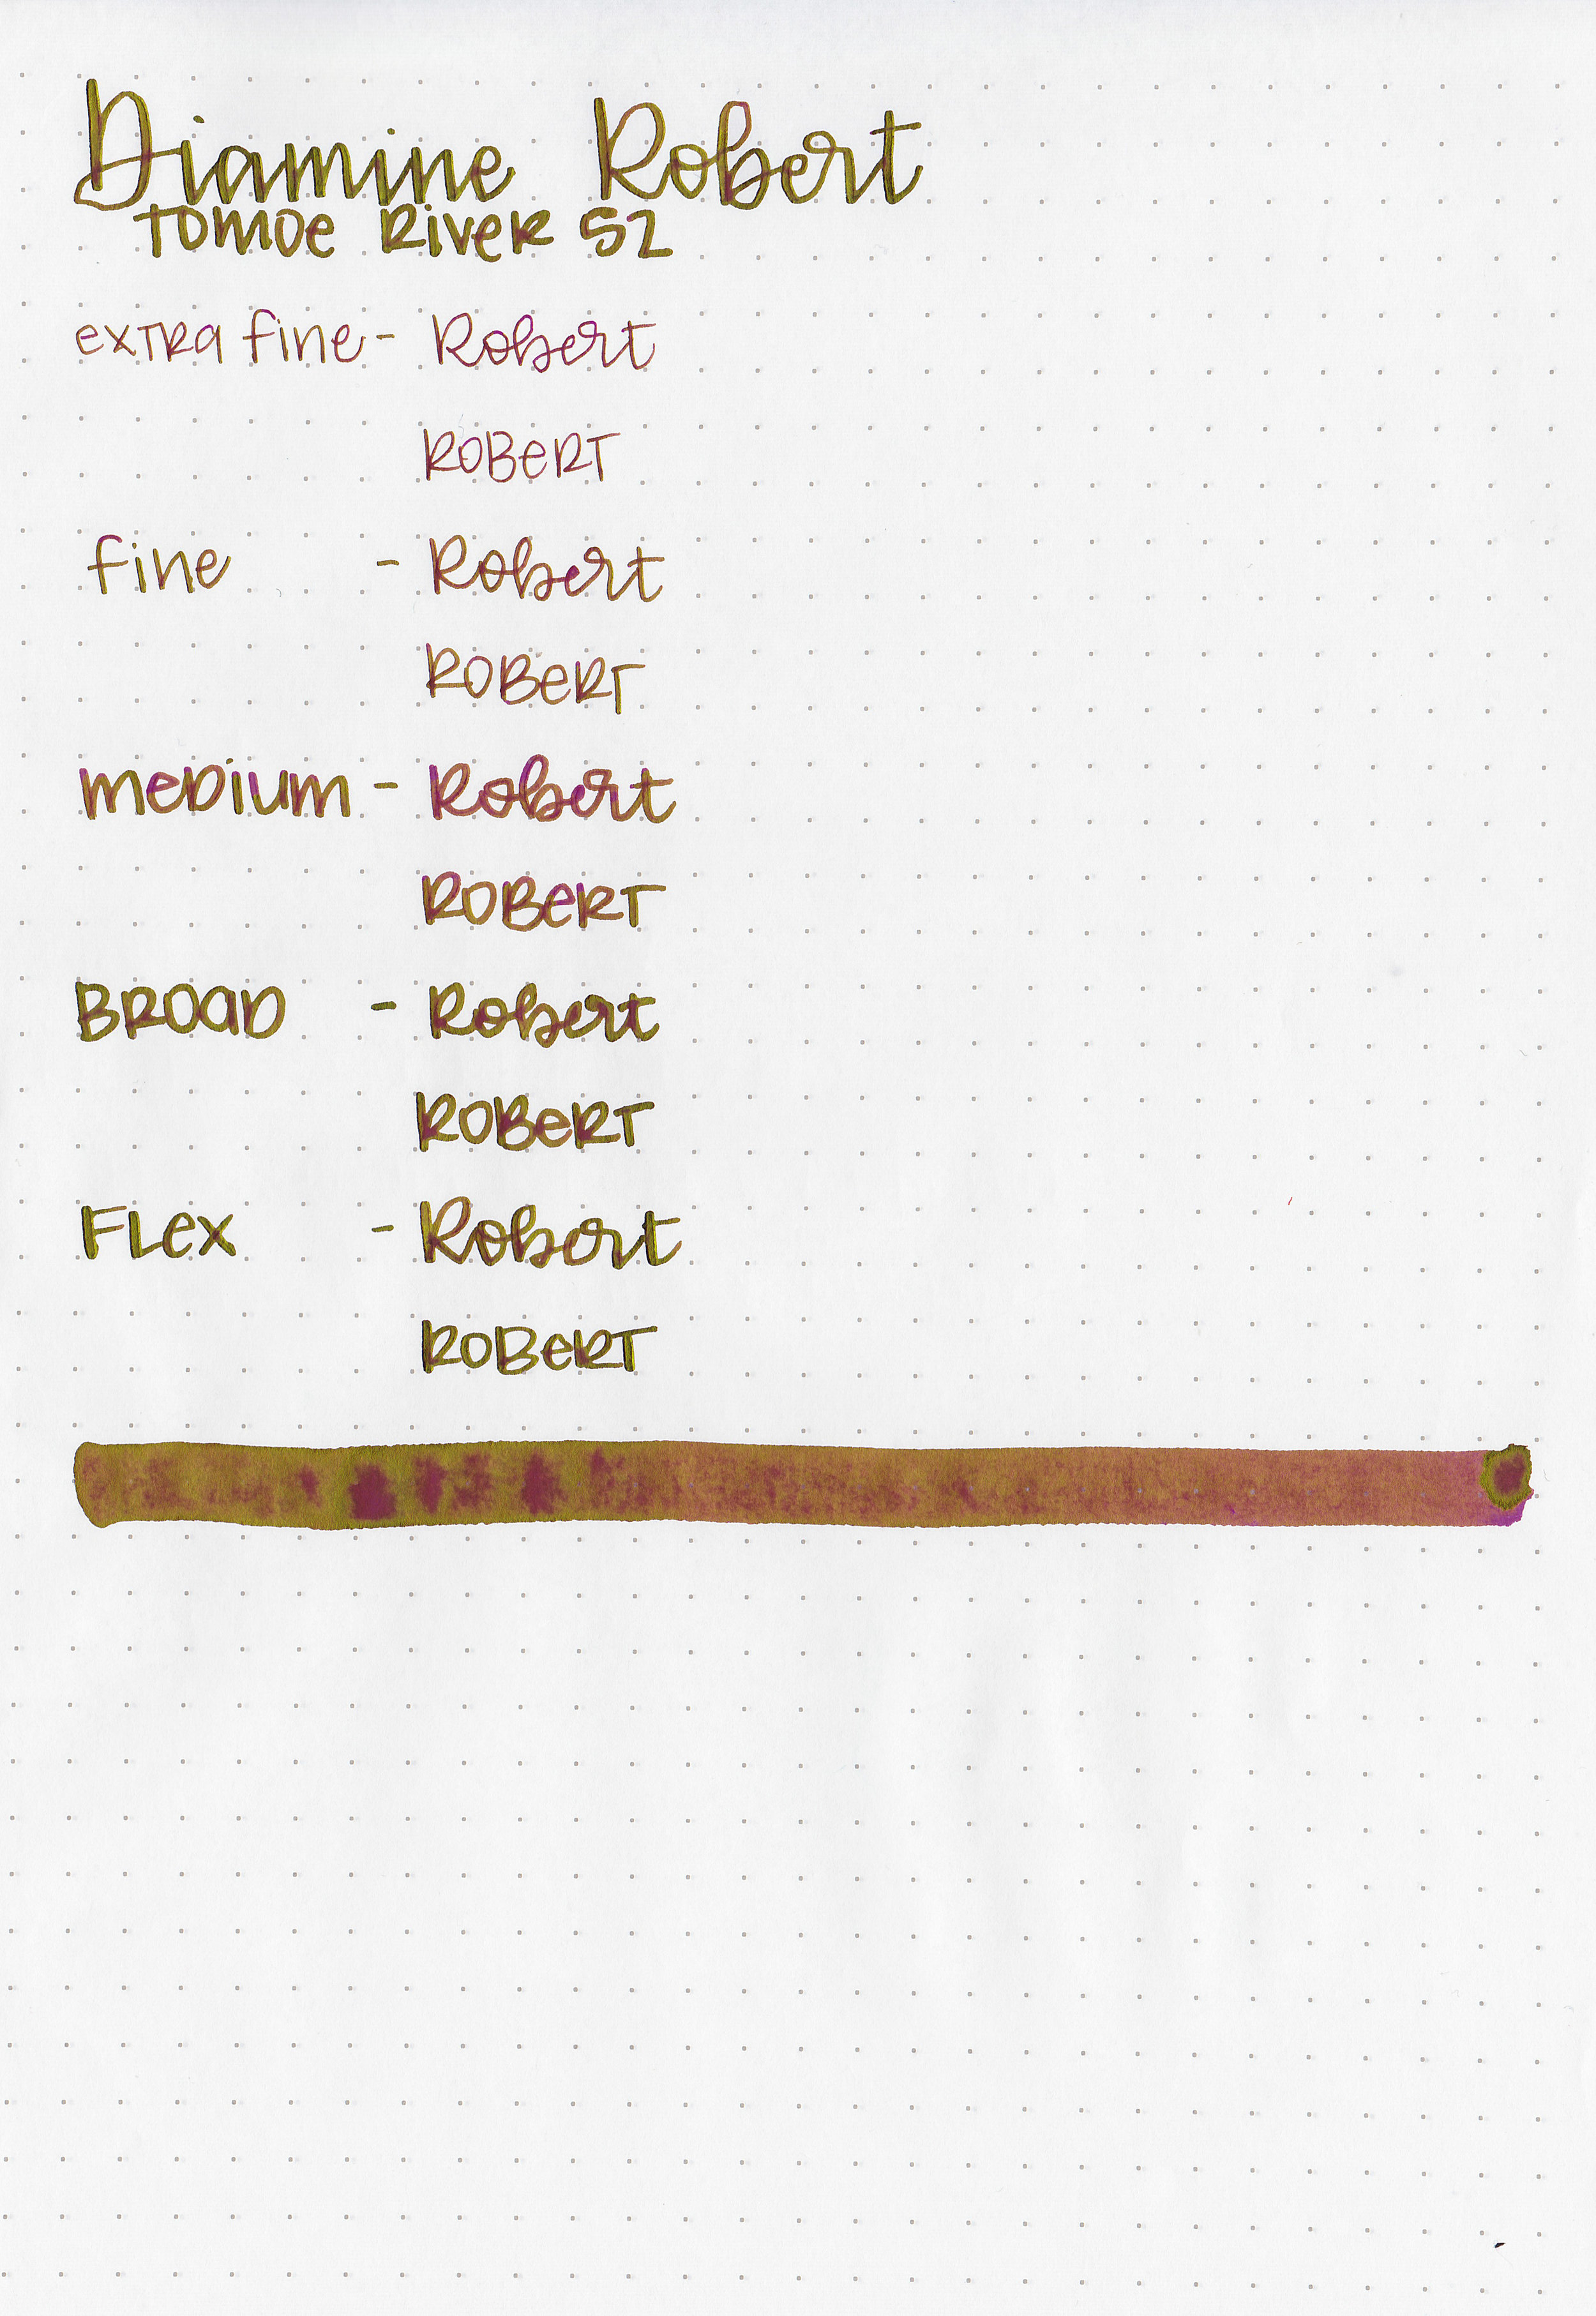 Diamine Robert
Tomoe River 52
extra fine - Robert
Robert
fine - Robert
Robert
medium - Robert
Robert
Broad - Robert
Robert
Flex - Robert
Robert